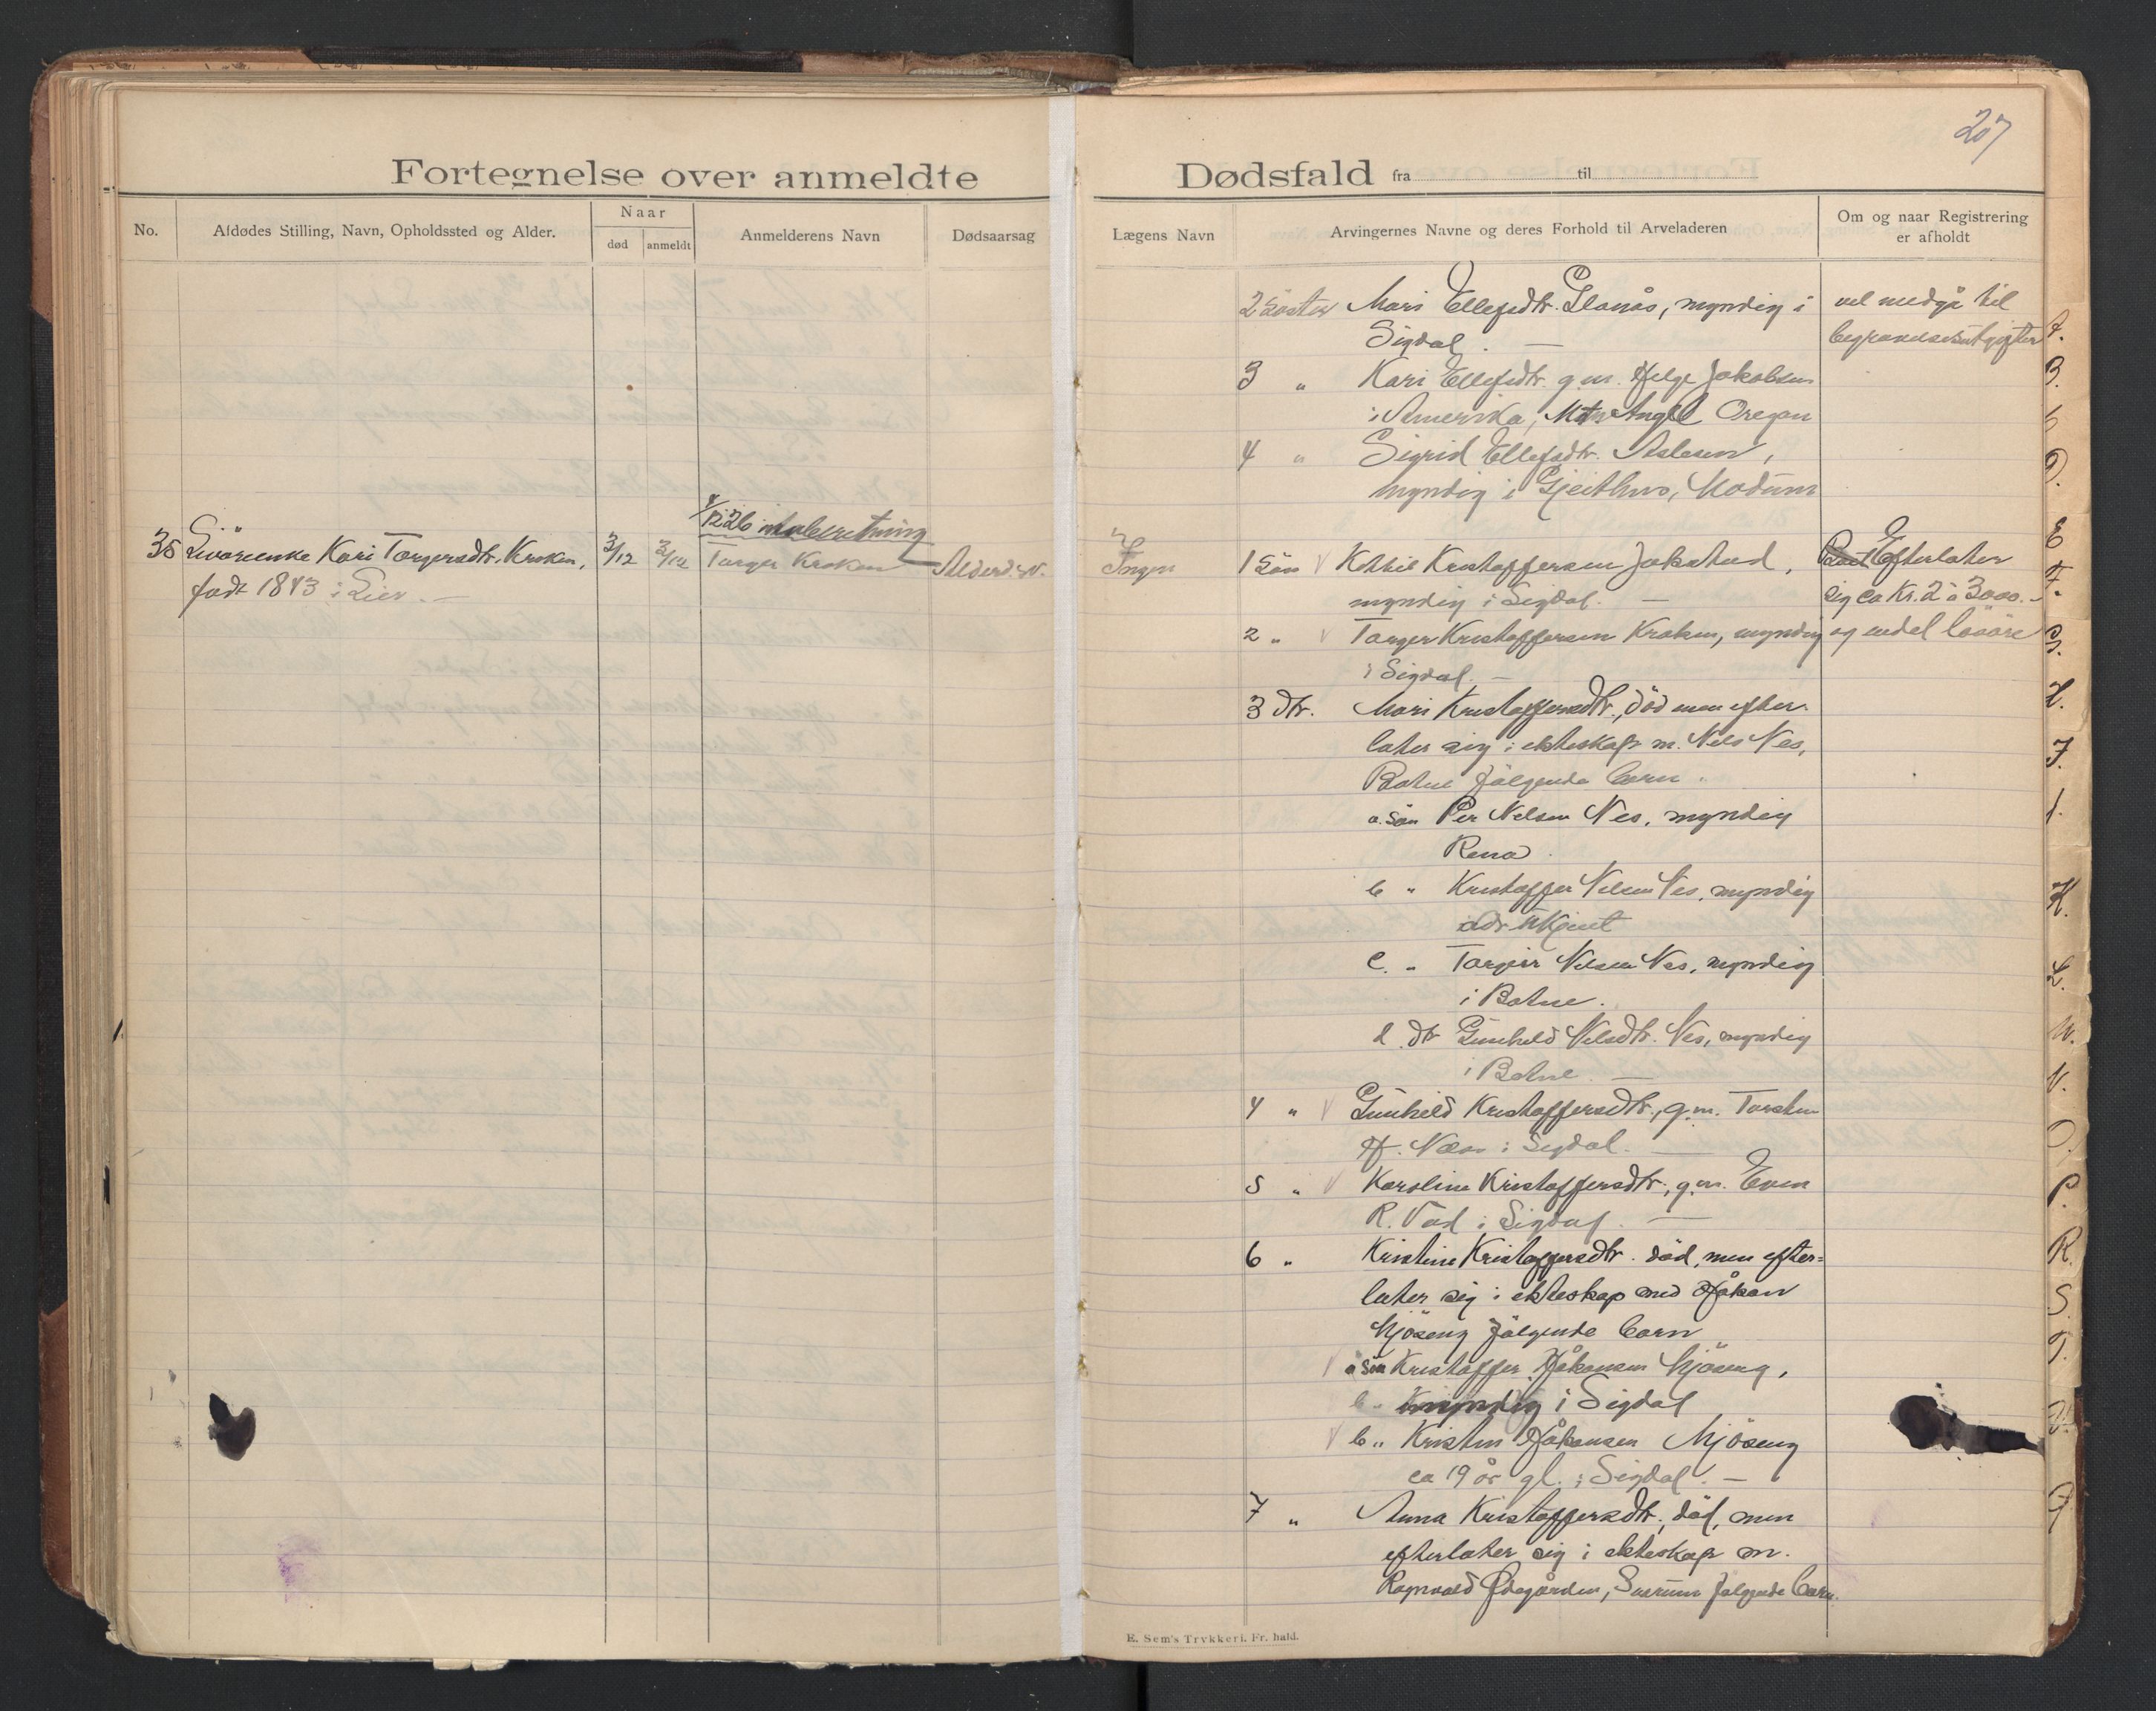 207
Fortegnelse over anmeldte Dødsfald fra til
No.
Afdødes Stilling, Navn, Opholdssted og Alder.
Naar
død
anmeldt
Anmelderens Navn
Dødsaarsag
Lægens Navn
Arvingernes Navne og deres Forhold til Arveladeren
Om og naar Registrering
er afholdt
2 Søster Mari Ellefsdtr. Glanås, myndig i
Sigdal. —
vel medgå til
begravelsesutgifter
3 " Kari Ellefsdtr. g.m. Helge Jakobsen
i Amerika, Mt. Angel Oregon
4 " Sigrid Ellefsdtr. Aslesen,
myndig i Gjeithus, Modum
4/12 26 innberetning
35 Livørenke Kari Torgersdtr. Kroken, 3/12 3/12 Torger Kroken Alderd.sv.
født 1843 i Lier. —
Ingen
1 Søn V Kittil Kristoffersen Jokstad,
myndig i Sigdal. —
Efterlater
sig ca Kr. 2 à 3000.-
og endel løsøre
2 " V Torger Kristoffersen Kroken, myndig
i Sigdal. —
3 dtr. Mari Kristoffersdtr., död men efter-
later sig i ekteskap m. Nils Nes,
Botne følgende barn.
a. Søn Per Nelsen Nes, myndig
Rena.
b " Kristoffer Nelsen Nes, myndig
adr.
c. " Torgeir Nelsen Nes, myndig
i Botne.
d. dtr Gunhild Nelsdtr. Nes, myndig
i Botne. —
4 " V Gunhild Kristoffersdtr., g.m. Torsten
H. Næss i Sigdal. —
5 " V Karoline Kristoffersdtr., g.m. Even
R. Vad i Sigdal. —
6 " Kristine Kristoffersdtr. död, men efter=
later sig i ekteskap med Håkon
Mjøseng følgende barn
V a Søn Kristoffer Håkonsen Mjøseng,
b " myndig i Sigdal
V b " Kristen Håkonsen Mjøseng
ca 19 år gl. i Sigdal. —
7 " Anna Kristoffersdtr., död, men
efterlater sig i ekteskap m.
Ragnvald Ødegården, Snarum følgende barn.
E. Sem's Trykkeri. Fr. hald.
A.
B.
D.
E
F.
G.
H.
I.
J.
K.
L.
M.
N.
O.
P.
R.
S.
T.
Ø